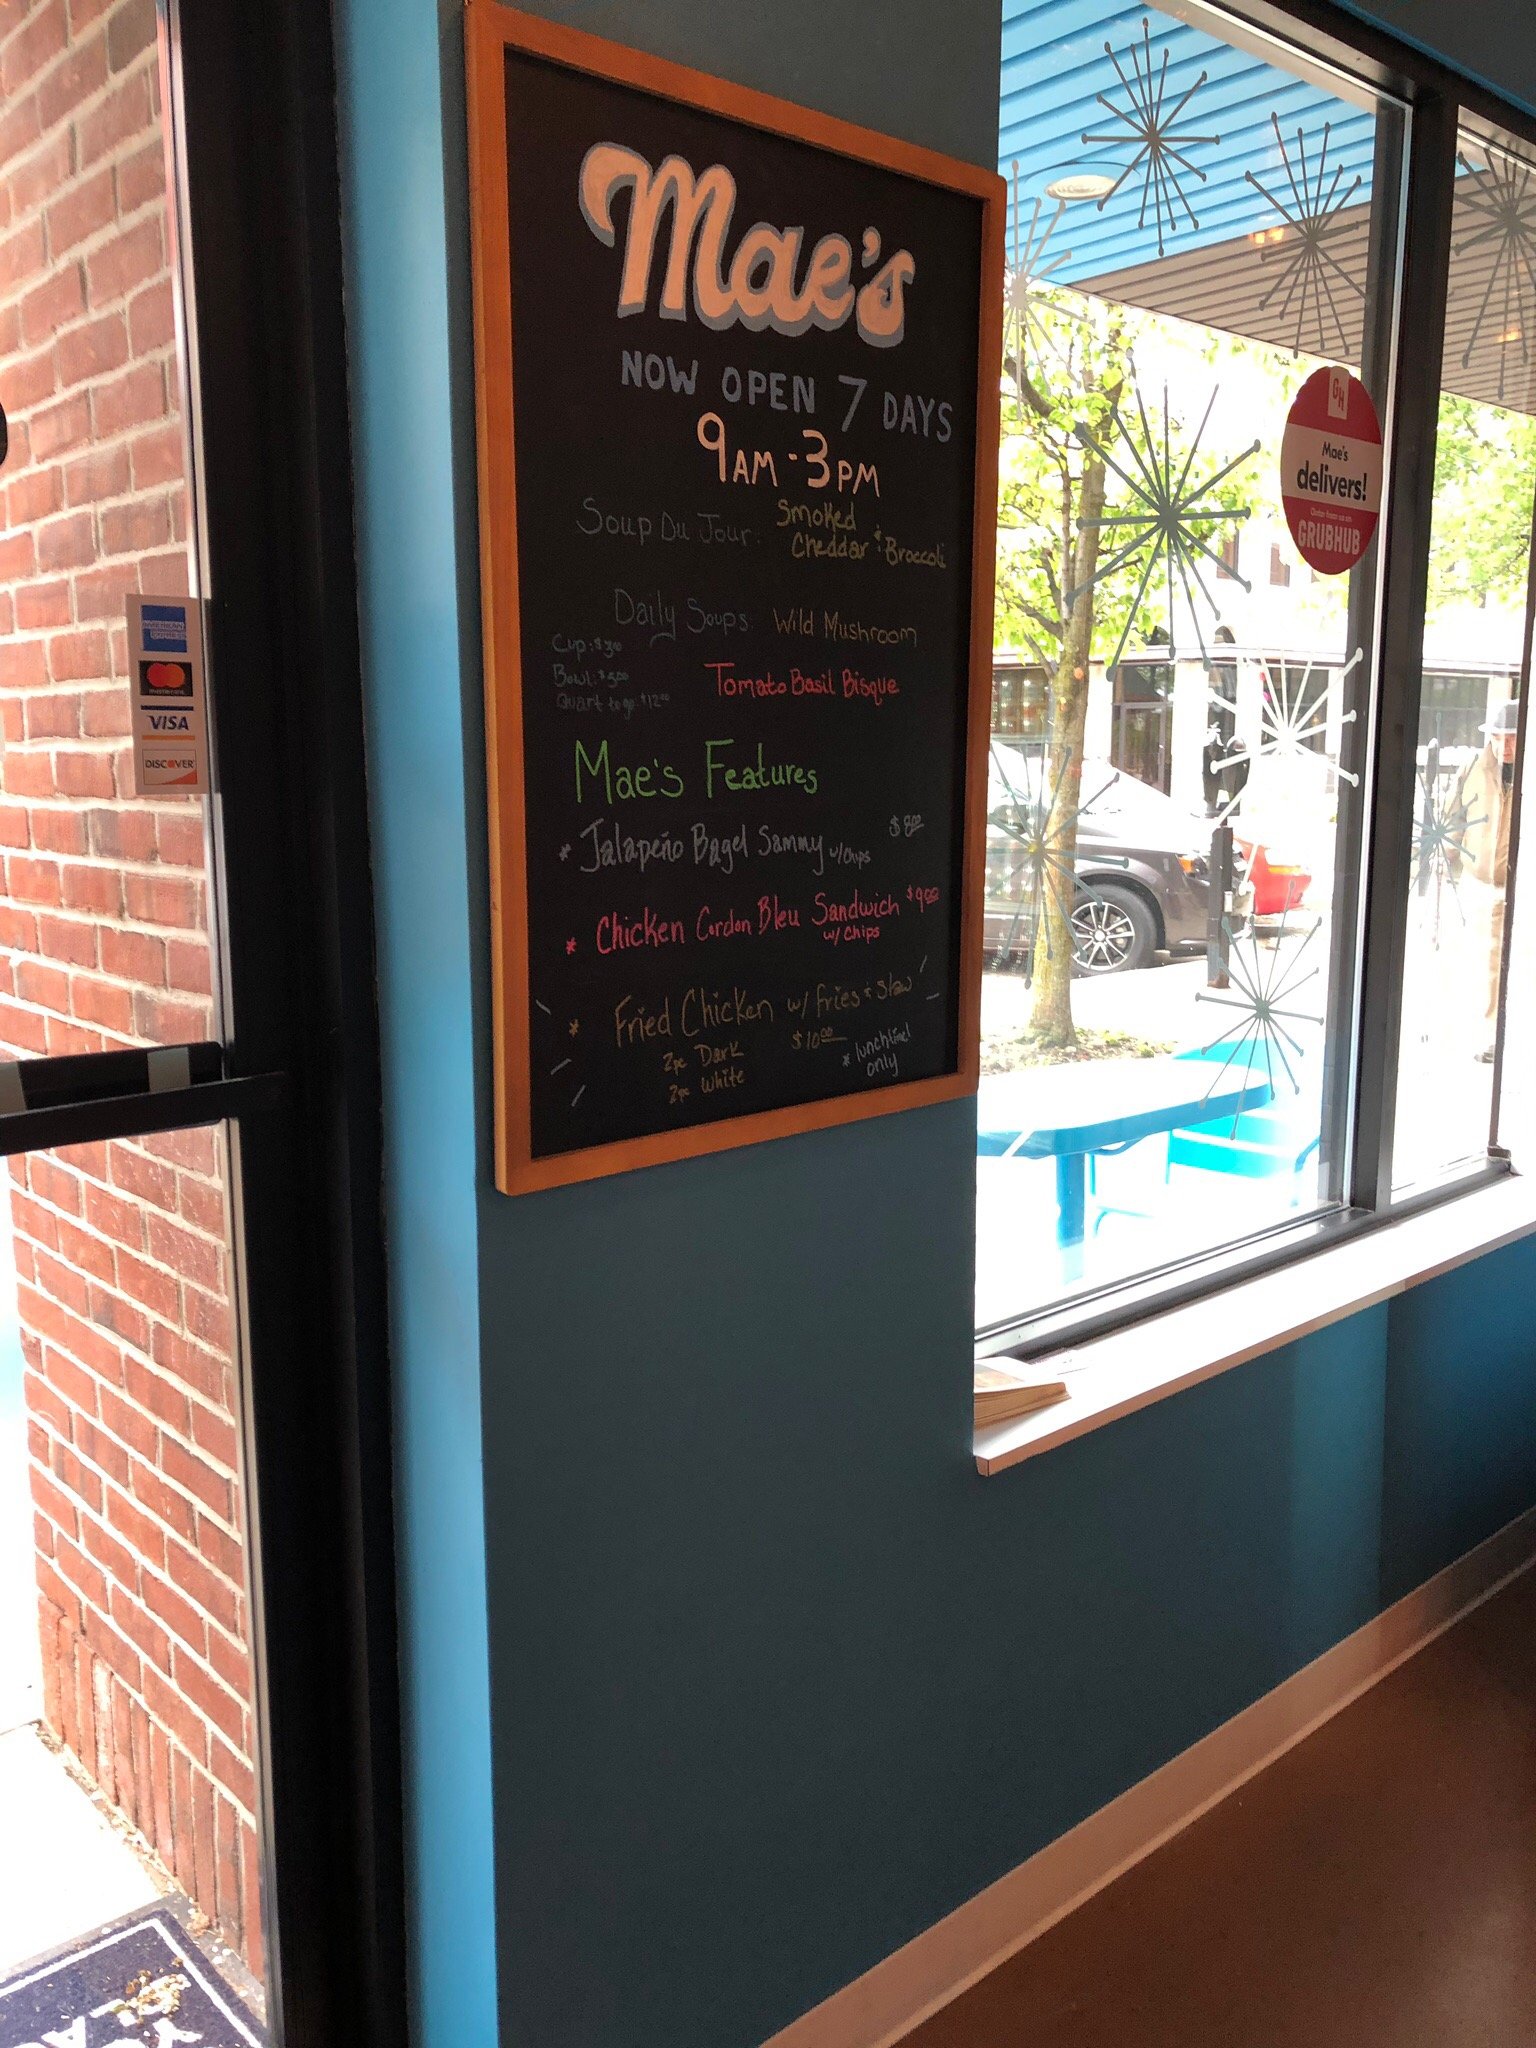 Mae's
NOW OPEN 7 DAYS
9AM - 3PM
Soup Du Jour: Smoked
Cheddar & Broccoli
Daily Soups: Wild Mushroom
Cup: $3.00
Bowl: $5.00
Quart to go $12.00
Tomato Basil Bisque
Mae's Features
* Jalapeño Bagel Sammy w/chips $8.00
* Chicken Cordon Bleu Sandwich $9.00
w/ chips
* Fried Chicken w/ fries & slaw
2pc Dark $10.00
2pc White
* lunchtime!
only
AMERICAN
EXPRESS
mastercard
VISA
DISCOVER
GH
Mae's
delivers!
GRUBHUB